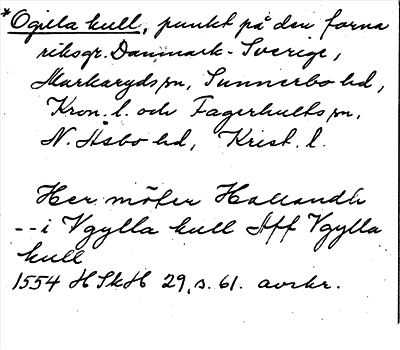 *Ogilla kull, punkt på den forna
riksgr. Danmark-Sverige,
Markaryds sn, Sunnerbo hd,
Kron. l. och Fagerhults sn,
N. Åsbo hd, Krist. l.
Her möter Hallandh
--i Vgylla kull Aff Vgylla
kull
1554 HSkH 29, s. 61. avskr.